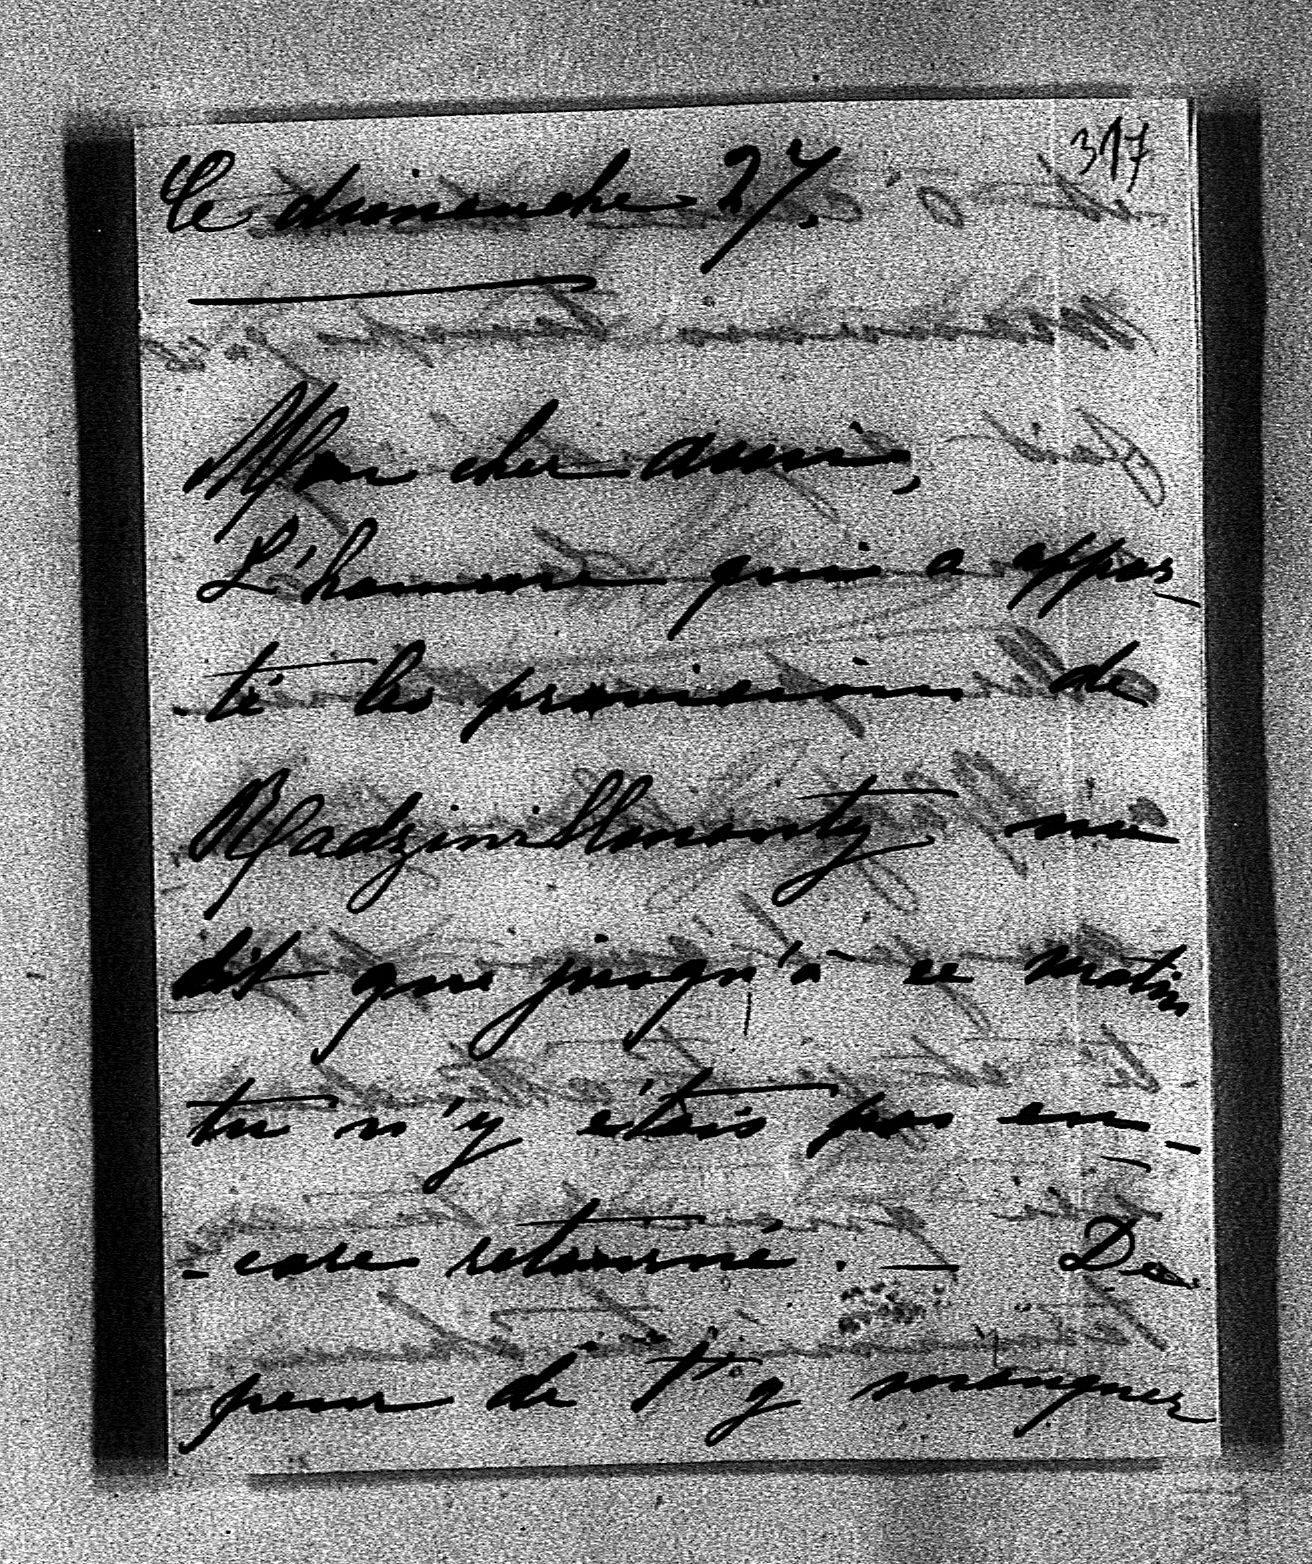 317
Le dimanche 27.
Mon cher ami,
L'homme qui a appor-
té les provisions de
dit que jusqu'à ce matin
tu n'y étais pas en-
-core retourné. — De
peur de t'y manquer